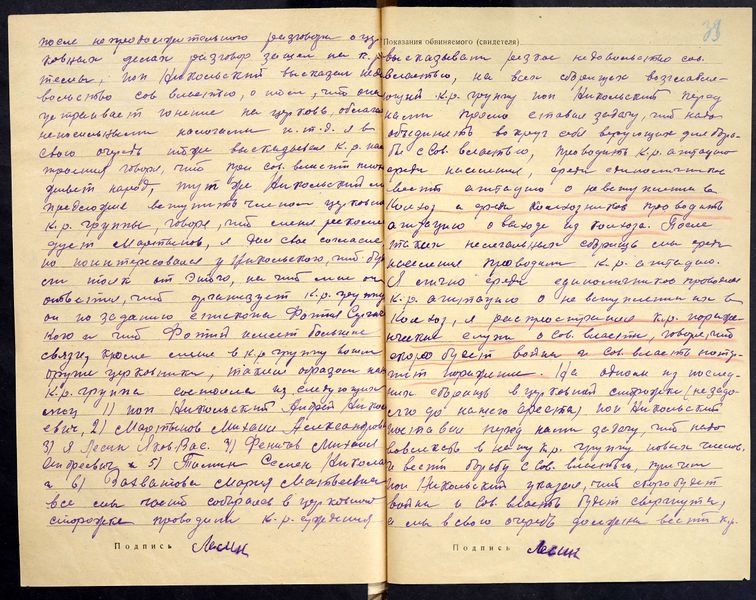 после непродолжительного разговора о цер
ковных делах разговор зашел на к.р.
темы, поп Никольский высказал недо
вольство сов. властью, о том, что она
устраивает гонение на церковь, облагая
непосильными налогами и т.д. я в
свою очередь также высказывал к.р. нас
троения говоря, что при сов. власти
народ, тут же Никольский
предложил вступить членом церковной
к.р. группы, говоря, что меня рекомен
дует Мартынов, я дал свое согласие
но поинтересовался у Никольского, что
от этого, на что мне он
ответил, что организует к.р. группу
он по заданию епископа Фотия
кого и что Фотий имеет большие
связи, кроме меня в к.р. группу вошли
другие церковники, таким образом наша
к.р. группа состояла из следующих
лиц 1) поп Никольский Андрей
евич, 2) Мартынов Михаил Александрович
3) Я Лесин Яков Вас. 4) Михаил
Андреевич и 5) Семен
и 6) Мария Матвеевна
все мы часто собирались в церковной
сторожке проводили к.р. суждения
Подпись Лесин
39
Показания обвиняемого (свидетеля)
высказывали резкое недовольство сов.
властью, на всех сборищах возглавля
ющий к.р. группу поп Никольский перед
нами прямо ставил задачу, что надо
объединять вокруг себя верующих для борь
бы с сов. властью, проводить к.р. агитацию
среди населения, среди единоличников
вести агитацию о невступлении в
колхоз и среди колхозников проводить
агитацию о выходе из колхоза. После
таких нелегальных сборищ мы среди
населения проводили к.р. агитацию.
Я лично среди единоличников проводил
к.р. агитацию о невступлении их в
колхоз, я распространял к.р. пораже
нческие слухи о сов. власти, говоря, что
скоро будет война и сов. власть
поражение. На одном из послед
них сборищ в церковной сторожке (незадо
лго до нашего ареста) поп Никольский
поставил перед нами задачу, что надо
вовлекать в нашу к.р. группу новых членов
и вести борьбу с сов. властью, при чем
поп Никольский указал, что скоро будет
война и сов. власть будет свергнута,
а мы в свою очередь должны вести к.р.
Подпись Лесин